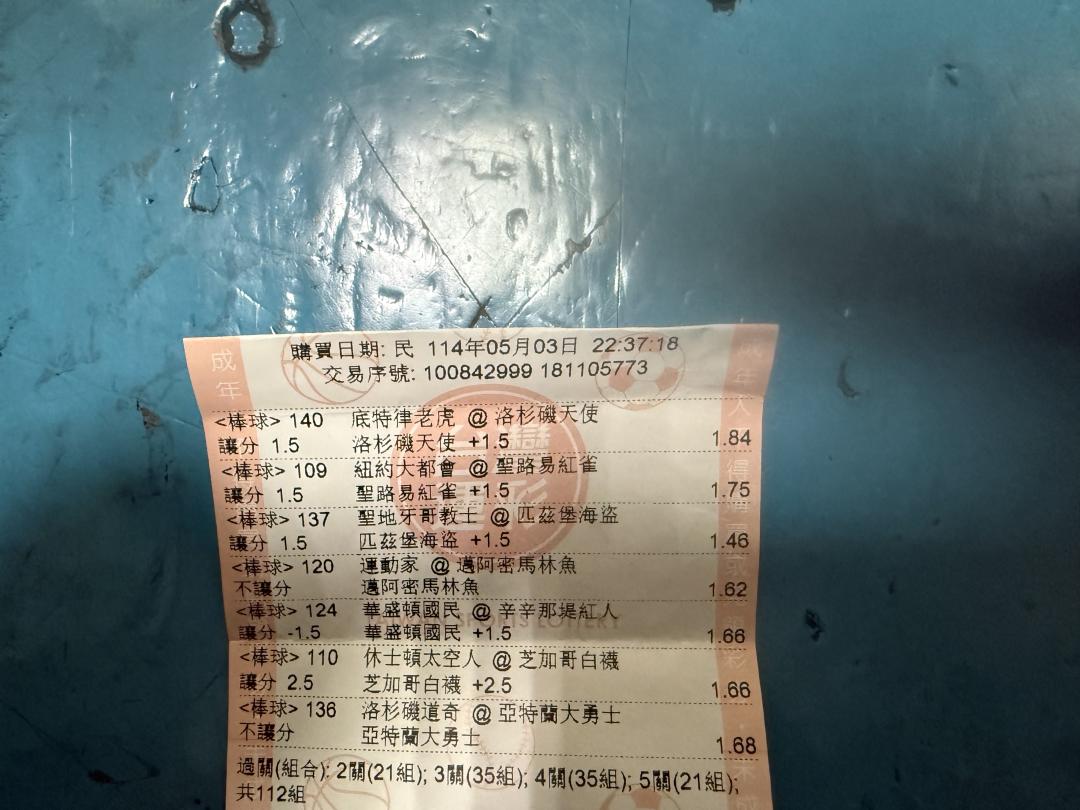 購買日期: 民 114年05月03日 22:37:18
交易序號: 100842999 181105773
成年
<棒球> 140 底特律老虎 @ 洛杉磯天使
讓分 1.5 洛杉磯天使 +1.5 1.84
<棒球> 109 紐約大都會 @ 聖路易紅雀
讓分 1.5 聖路易紅雀 +1.5 1.75
<棒球> 137 聖地牙哥教士 @ 匹茲堡海盜
讓分 1.5 匹茲堡海盜 +1.5 1.46
<棒球> 120 運動家 @ 邁阿密馬林魚
不讓分 邁阿密馬林魚 1.62
<棒球> 124 華盛頓國民 @ 辛辛那堤紅人
讓分 -1.5 華盛頓國民 +1.5 1.66
<棒球> 110 休士頓太空人 @ 芝加哥白襪
讓分 2.5 芝加哥白襪 +2.5 1.66
<棒球> 136 洛杉磯道奇 @ 亞特蘭大勇士
不讓分 亞特蘭大勇士 1.68
過關(組合): 2關(21組); 3關(35組); 4關(35組); 5關(21組);
共112組
SPORTS LOTTERY